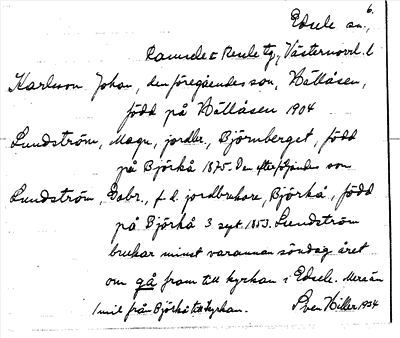 6.
Edsele sn.,
Ramsele & Resele tg, Västernorrl. l
Karlsson Johan, den föregåendes son, Hällåsen,
född på Hällåsen 1904
Lundström, Magn, jordbr., Björnberget, född
på Björkå 1875. Den efterföljandes son
Lundström, Gabr., f d. jordbrukare, Björkå, född
på Björkå 3 sept. 1853. Lundström
brukar minst varannan söndag året
om gå fram till kyrkan i Edsele. Mer än
1 mil från Björkå till kyrkan. Sven Hiller 1934